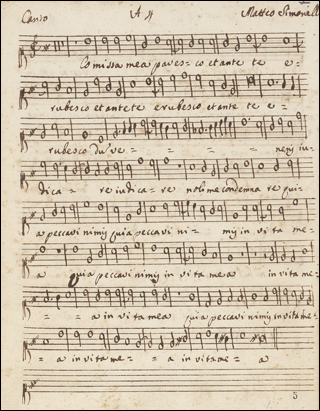 Canto A 4 Matteo Simonelli
Comissa mea paves= co et ante te e=
rubesco et ante te erubesco et ante te e=
rubesco du ve= = = = = neris iu=
dica= re iudica= re noli me condemnare quia
a peccavi nimis quia peccavi ni= mis in vita me=
a quia peccavi nimis in vita mea in vita me=
= = a in vita mea quia peccavi nimis in vita me=
= = a in vita me= = a in vita me= a
5